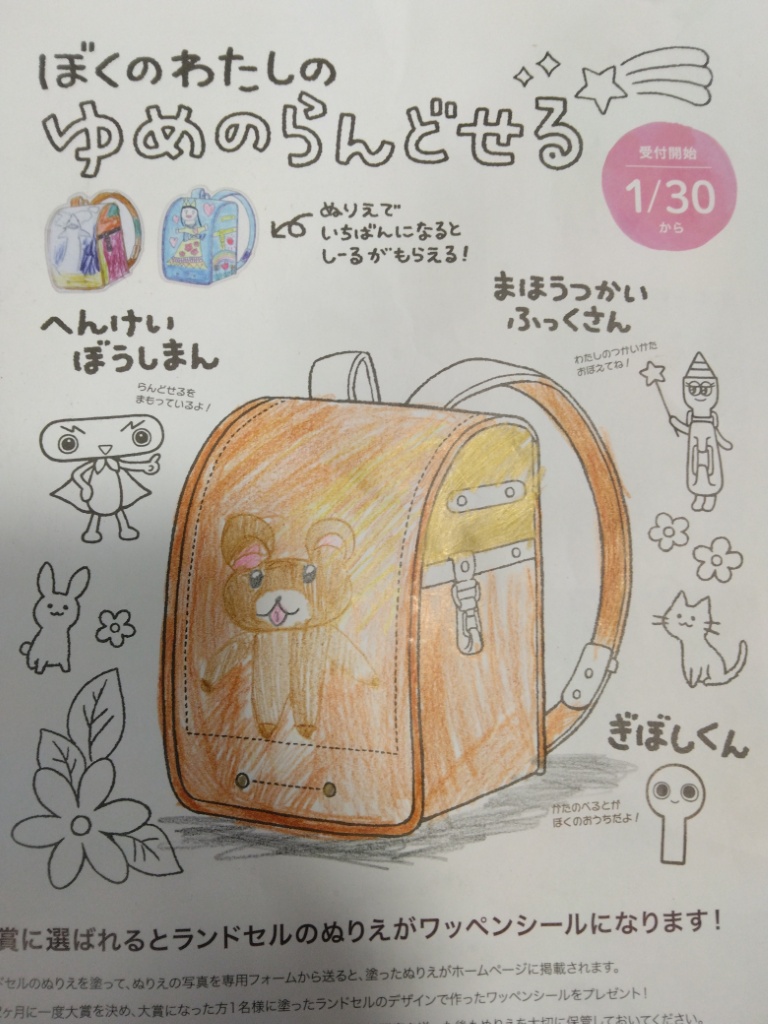 ぼくのわたしの
ゆめのらんどせる
受付開始
1/30
から
ぬりえで
いちばんになると
しーるがもらえる!
まほうつかい
ふっくさん
わたしのつかいかた
おぼえてね!
へんけい
ぼうしまん
らんどせるを
まもっているよ!
ぎぼしくん
かたのべるとが
ぼくのおうちだよ!
賞に選ばれるとランドセルのぬりえがワッペンシールになります!
ドセルのぬりえを塗って、ぬりえの写真を専用フォームから送ると、塗ったぬりえがホームページに掲載されます。
ヶ月に一度大賞を決め、大賞になった方1名様に塗ったランドセルのデザインで作ったワッペンシールをプレゼント!
ぬりえを大切に保管しておいてください。